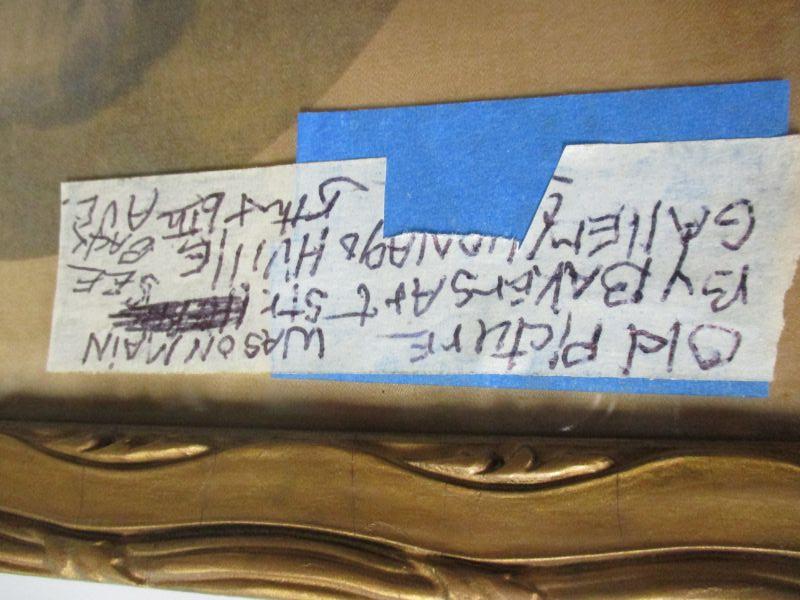 Old PicturE
By BAkErs Art
GAllEry
WAS ON MAiN
Str.
HVillE
5th + 6th AVE
SEE
BACK